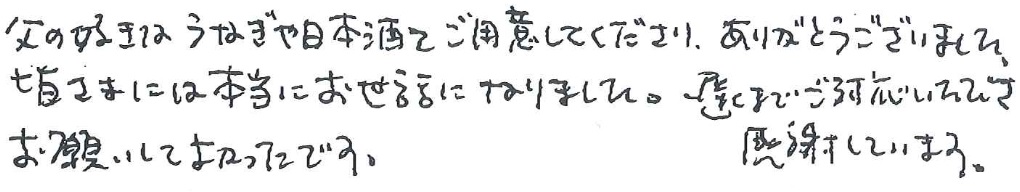 父の好きなうなぎや日本酒をご用意してくださり、ありがとうございました。
皆さまには本当にお世話になりました。遅くまでご対応いただき
お願いしてよかったです。感謝しています。